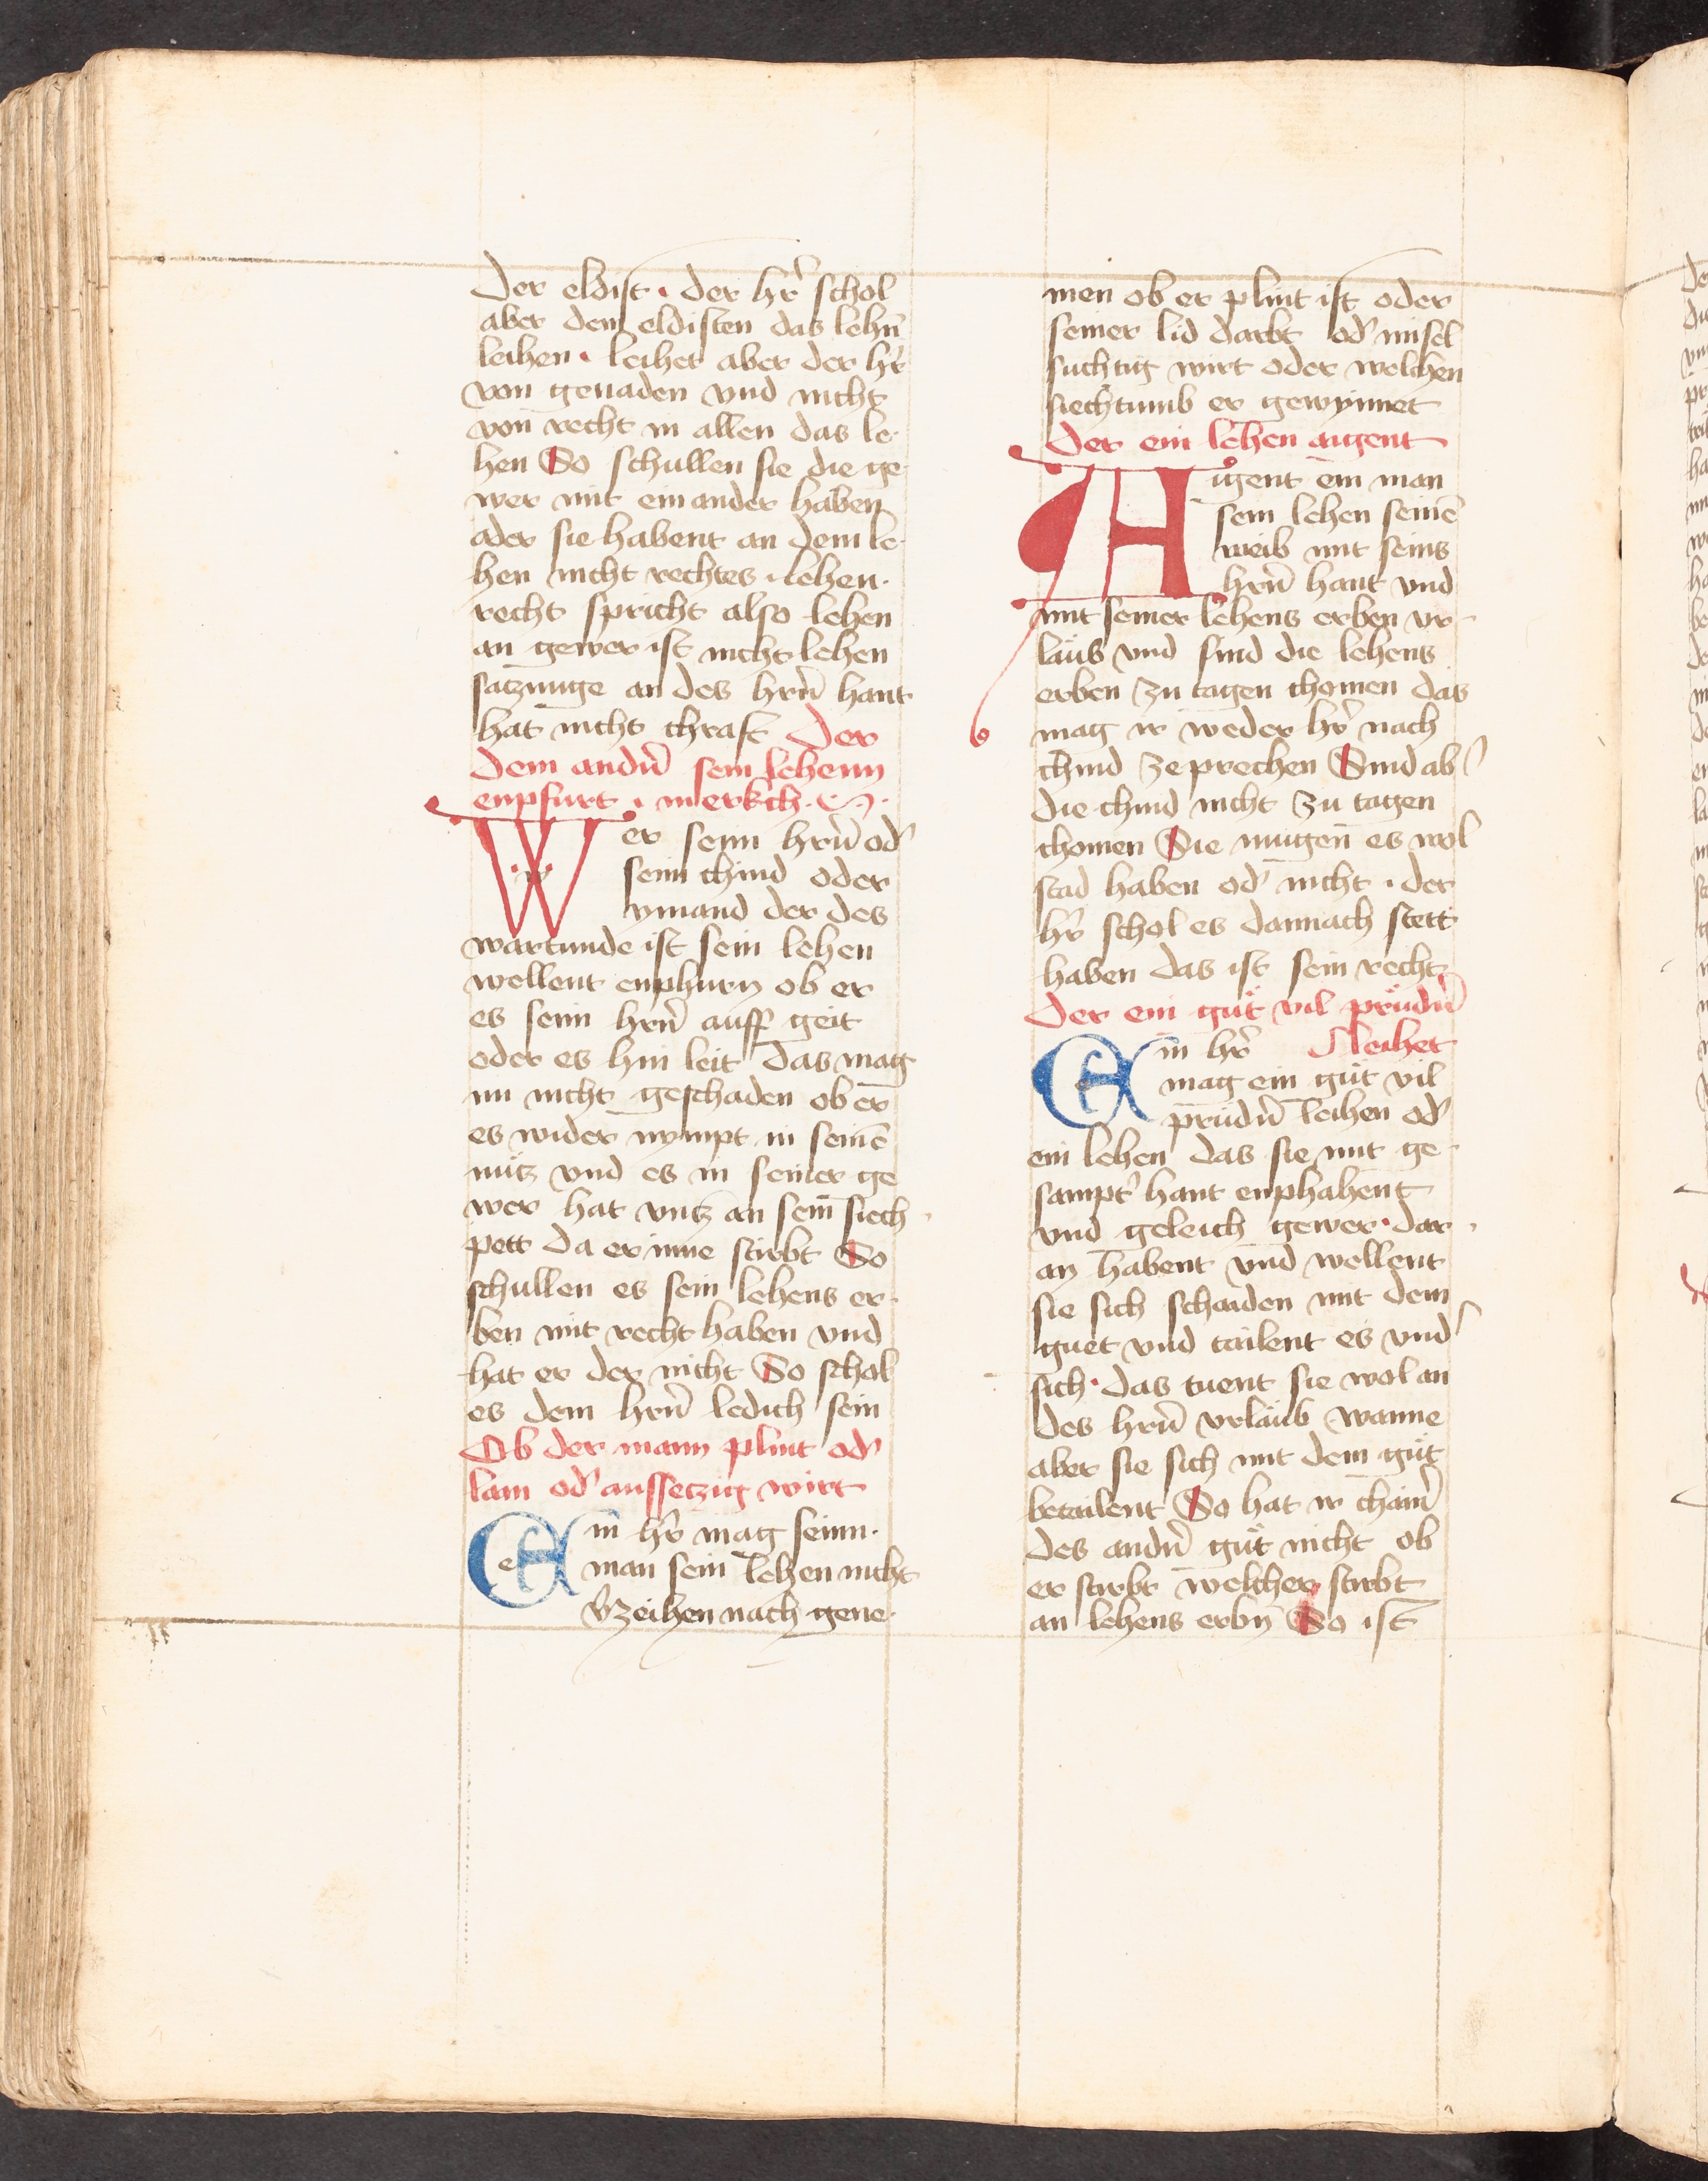 Der eldist · der hr̄ schol
aber dem eldisten das lehn̄
leihen · leihet aber der hr̄
von genaden vnd nicht
von recht in allen das le-
hen So schullen sie die ge-
wer mit ein ander haben
oder sie habent an dem le-
hen nicht rechtes · lehen-
recht spricht also lehen
an gewer ist nicht lehen
satzunge an des hrn̄ hant
hat nicht chraft Der
dem andn̄ sein lehenn
enpfurt · merkch ·
Wer seyn hrn̄ od̛
seim chind oder
ymand der des
wartunde ist sein lehen
wellent enphurn ob er
es seim hrn̄ auff geit
oder es hin leit das mag
im nicht geschaden ob er
es wider nympt in seinē
nütz vnd es in seiner ge
wer hat vntz an sein siech
pett da er inne stirbt So
schullen es sein lehens er-
ben mit recht haben vnd
hat er der nicht So schol
es dem hrn̄ ledich sein
Ob der mann plint od̛
lam od̛ aussetzig wirt
Ein hr̄ mag seim
man sein lehen nicht
v̛zeihen nach gene-
men ob er plint ist oder
seiner lid darbt od̛ misel
suchtig wirt oder welchen
siechtumb er gewynnet
Der ein lehen aigent
Aigent ein man
sein lehen seinē
weib mit seins
hrn̄ hant vnd
mit seiner lehens erben vr-
laub vnd sind die lehens
erben zu tagen chomen das
mag ir weder hr̄ nach
chind zeprechen Sind ab̛
die chind nicht zu tagen
chomen Sie mugen es wol
stad haben od̛ nicht · der
hr̄ schol es dannach stett
haben das ist sein recht
Der ein güt vil prüdn̄
leihet
Ein hr̄
mag ein güt vil
prüdn̄ leihen od̛
ein lehen das sie mit ge-
sampt̛ hant enphahent
vnd geleich gewer · dar
an habent vnd wellent
sie sich schaiden mit dem
guet vnd tailent es vnd̛
sich · das tuent sie wol an
des hrn̄ vrlaub wanne
aber sie sich mit dem güt
betailent So hat ir chain̄
des andn̄ güt nicht ob
er stirbt welcher stirbt
an lehens erbn̄ So ist